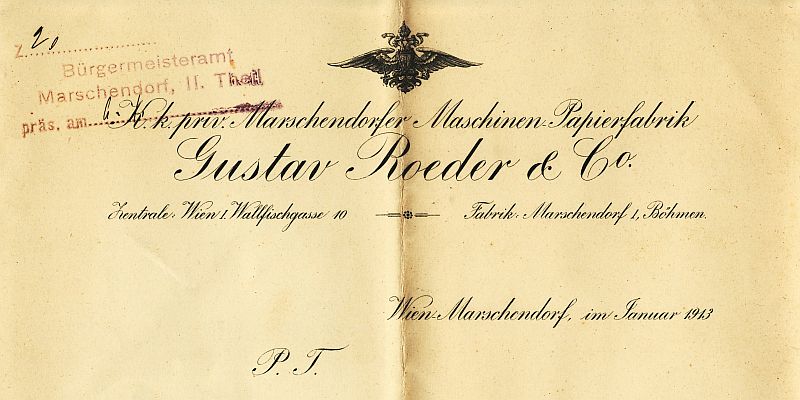 Z. 20
Bürgermeisteramt
Marschendorf, II. Theil
präs. am
K. k. priv. Marschendorfer Maschinen-Papierfabrik
Gustav Roeder & Co.
Zentrale: Wien 1. Wallfischgasse 10
Fabrik: Marschendorf 1, Böhmen.
Wien-Marschendorf, im Januar 1913
P. T.